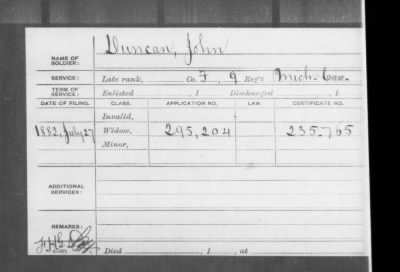 NAME OF SOLDIER: Duncan, John
SERVICE: Late rank, Co. F, 9 Reg't Mich. Cav.
TERM OF SERVICE: Enlisted , 1 Discharged , 1
DATE OF FILING. CLASS. APPLICATION NO. LAW. CERTIFICATE NO.
Invalid,
1882, July 27 Widow, 295,204 235-765
Minor,
ADDITIONAL SERVICES:
REMARKS:
Died , 1 , at